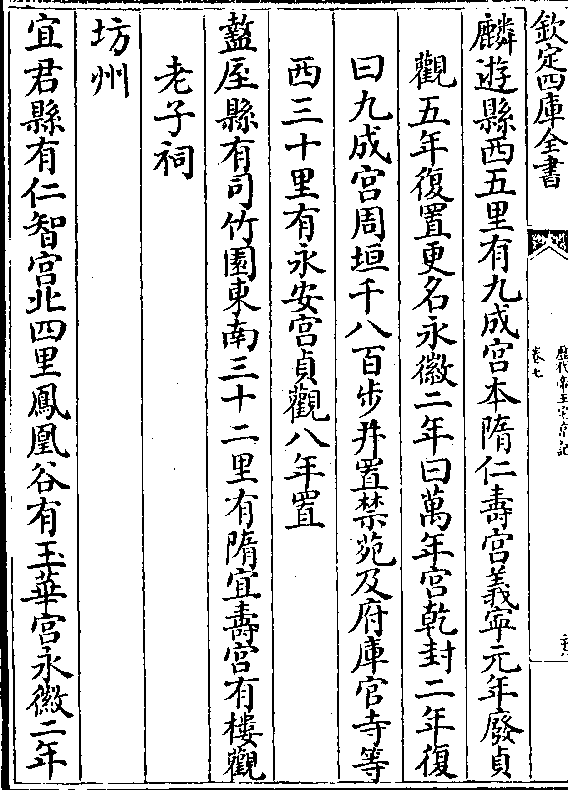 欽定四庫全書
歷代帝王宅京記
卷七
麟遊縣西五里有九成宮本隋仁壽宮義寧元年廢貞
觀五年復置更名永徽二年曰萬年宮乾封二年復
曰九成宮周垣千八百步并置禁苑及府庫官寺等
西三十里有永安宮貞觀八年置
盩厔縣有司竹園東南三十二里有隋宜壽宮有樓觀
老子祠
坊州
宜君縣有仁智宮北四里鳳凰谷有玉華宮永徽二年